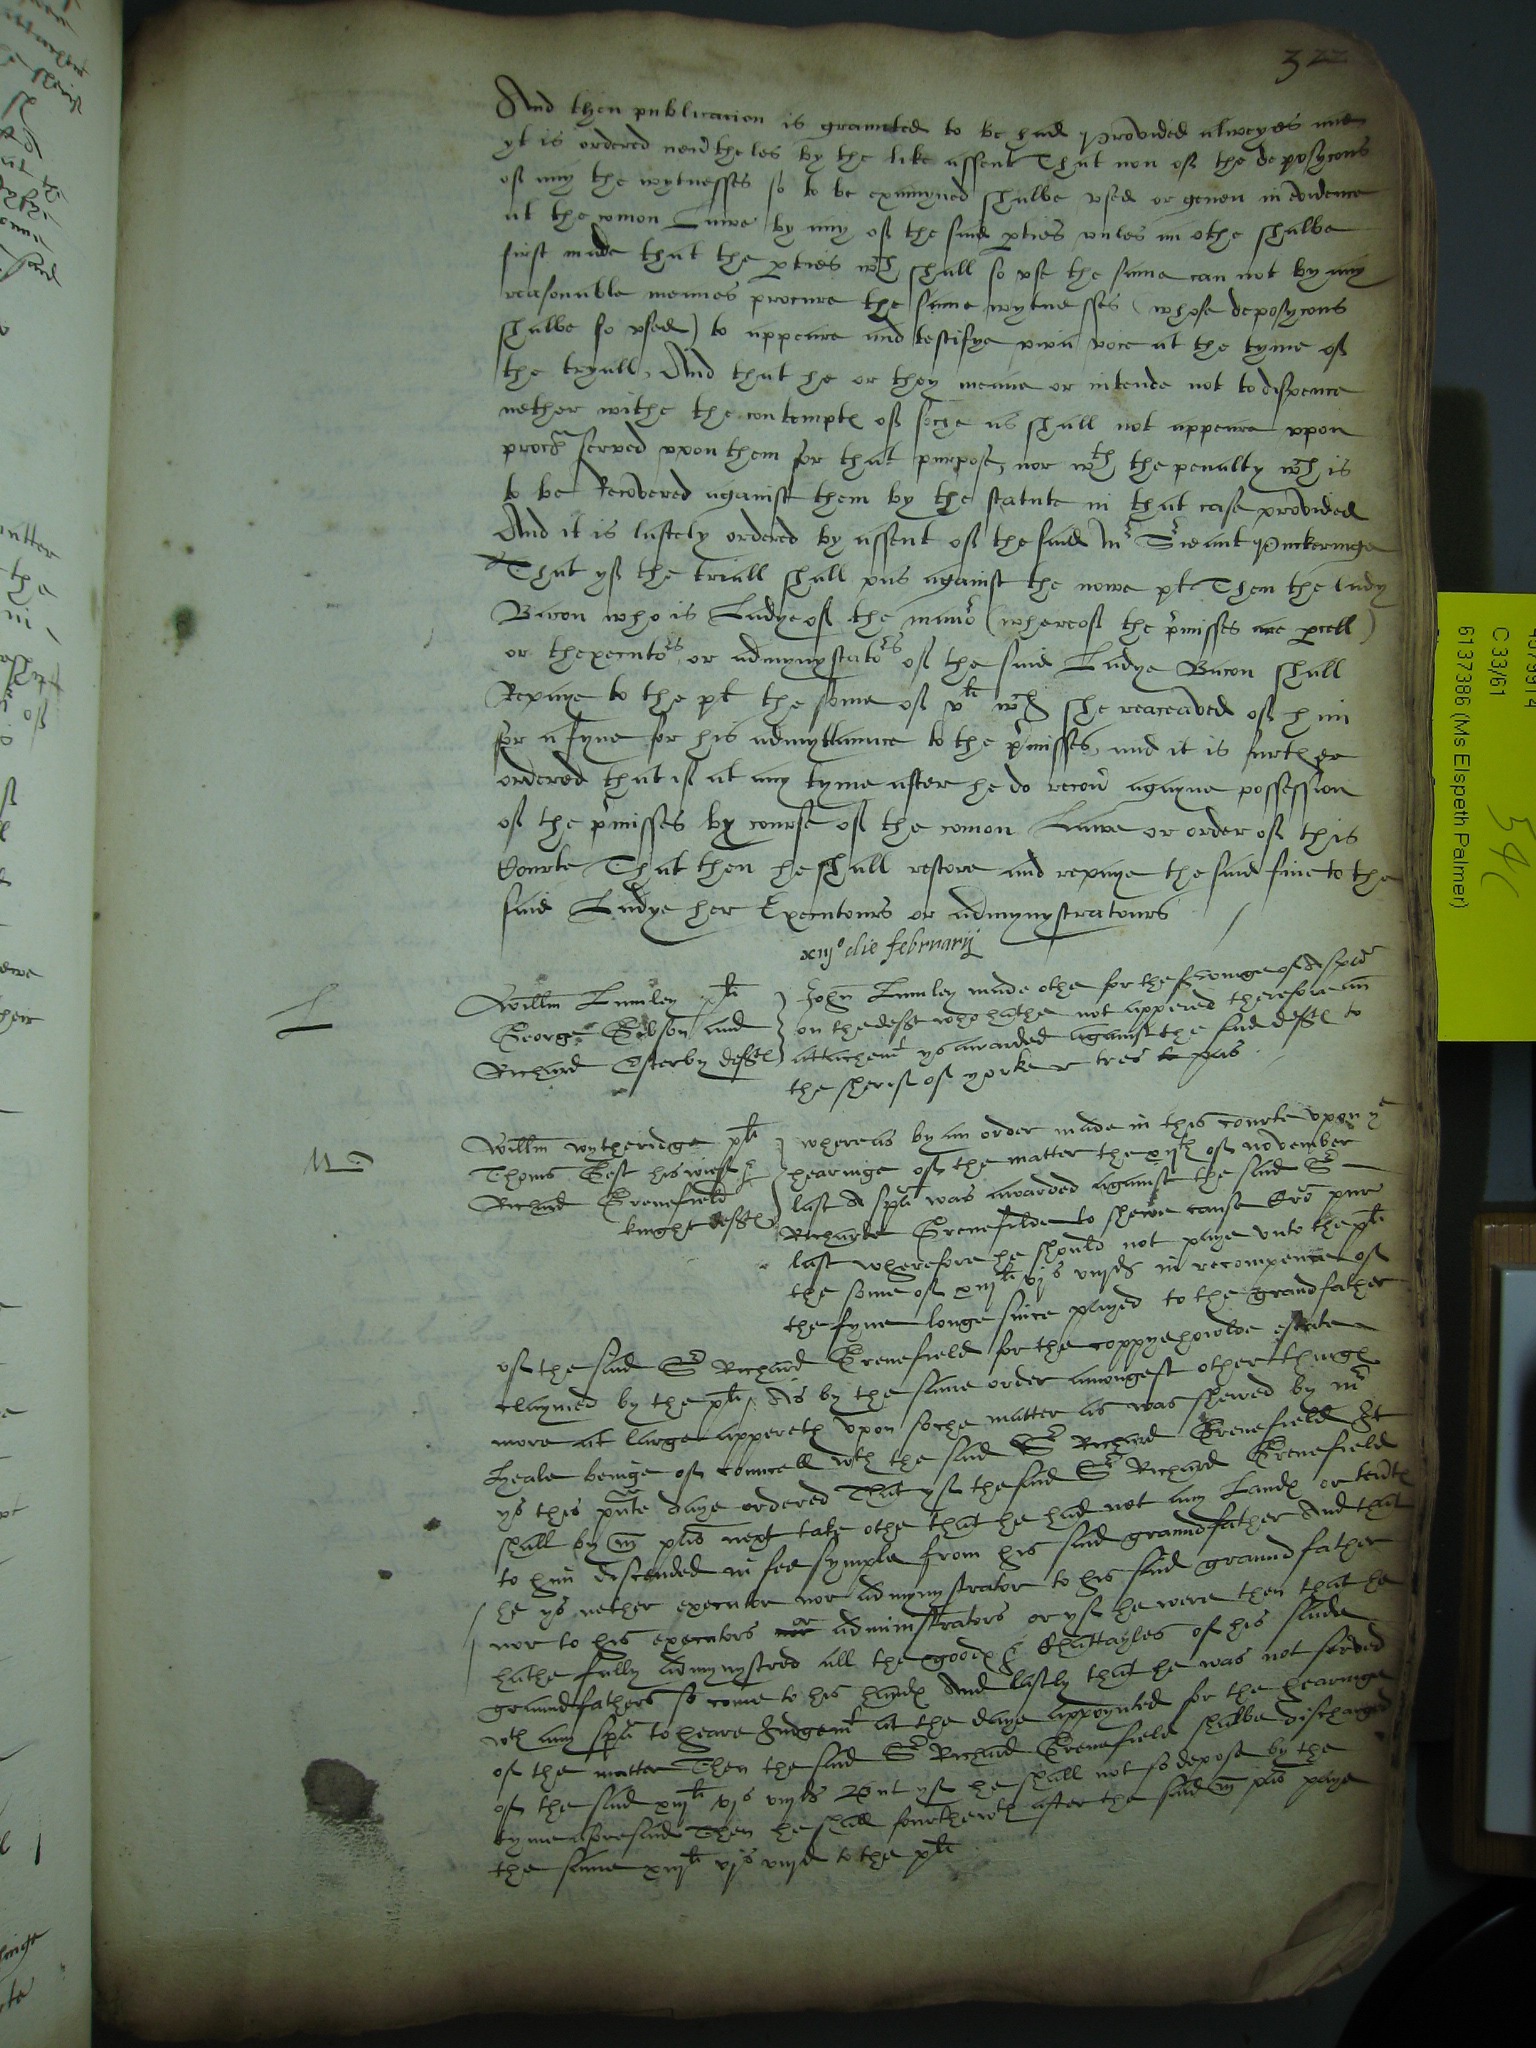 322
And then publication is graunted to be had Provided alweyes and
yt is ordered neu'theles by the like assent That non of the deposycons
of any the wytnesses so to be examyned shalbe vsed or geuen in evidence
at the comon Lawe by any of the said p'ties vnles an othe shalbe
first made that the p'ties wch shall so vse the same can not by any
reasonable meanes procure the same wytnesses (whose deposycons
shalbe so vsed) to appeare and testifye viva voice at the tyme of
the tryall, And that he or they meane or intende not to dispence
nether withe the contempt of soche as shall not appeare vpon
proces served vpon them for that purpose, nor wth the penalty wch is
to be Recovered against them by the statute in that case provided
And it is lastely ordered by assent of the said Mr Sr'ieant Puckeringe
That yf the triall shall pas against the nowe plt Then the lady
Bacon who is Ladye of the mano' (whereof the p'misses are p'cell)
or thexecuto's or admynystrato's of the said Ladye Bacon shall
Repaye to the plt the some of vli wch she reaceaved of him
for a fyne for his admyttaunce to the p'misses, and it is further
ordered that if at any tyme after he do recou' agayne possession
of the p'misses by course of the comon Lawe or order of this
Courte That then he shall restore and repaye the said fine to the
said Ladye her Executours or admynystratours
xiijo die februarij
L
Willm Lumley plt
George Gibson and
Richard Esterby defts
John Lumley made othe for the serving of a spa'
on the deft who hathe not appered therefore an
attachemt ys awarded against the said defts to
the sherif of yorke r tres pas
M
Willm wytheridge plt
Thoms Gest his wief &
Richard Grenefield
knight defts
whereas by an order made in this courte vpon ye
hearinge of the matter the xijth of november
last A spa' was awarded against the said Sr
Richarde Grenefilde to shewe cause Cro' pur'
last wherefore he should not paye vnto the plt
the some of xiijli vjs viijd in recompence of
the fyne longe since played to the grandfather
of the said Sr Richard Grenefield for the coppyehowlde estate
claymed by the plt, As by the same order amongest other things
more at large appereth vpon soche matter as was shewed by mr
Heale beinge of councell wth the said Sr Richard Grenefield It
ys this p'nte daye ordered That yf the said Sr Richard Grenefield
shall by m' pas' next take othe that he had not any Lands or tents
to him discended in fee symple from his said graundfather And that
he ys nether executor nor admynystrator to his said graundfather
nor to his executors nor or administrators or yf he were then that he
hathe fully admynystred all the goods & Chattayles of his saide
graundfathers so come to his hands And lastly that he was not served
wth any spa' to heare Judgemt at the daye appoynted for the hearinge
of the matter Then the said Sr Richard Grenefield shalbe discharged
of the said xiijli vjs viijd But yf he shall not so depose by the
tyme aforesaid Then he shall fourthewth after the said m' pas' paye
the same xiijli vjs viijd to the plt
C 33/61
6137386 (Ms Elspeth Palmer)